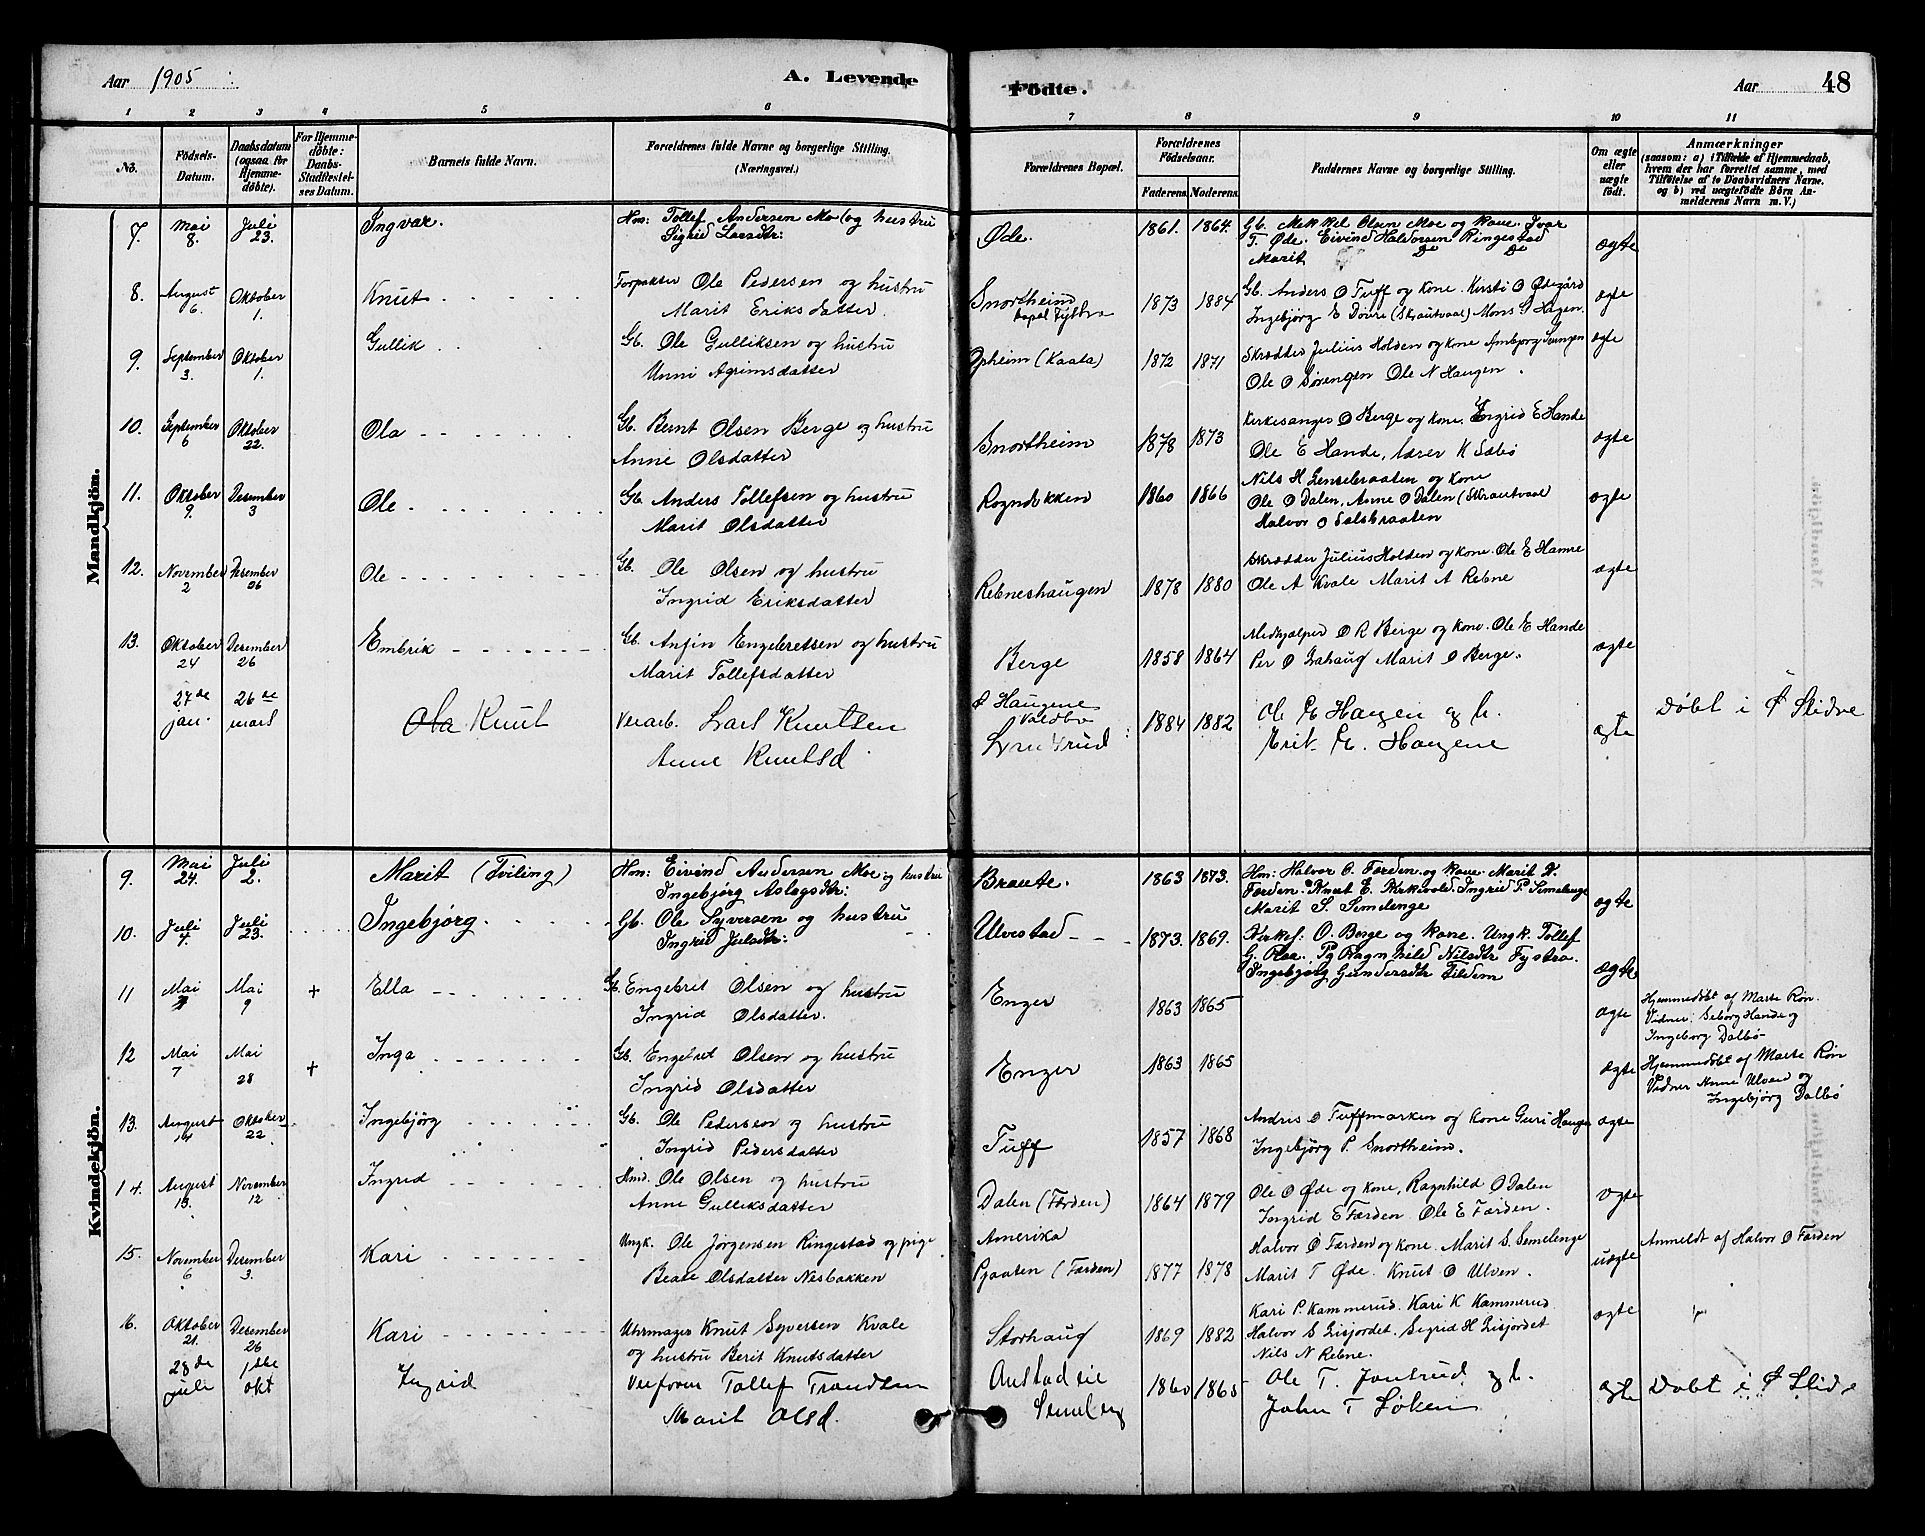 Aar 1905
A. Levende
Fødte.
Aar
48
1 2 3 4 5 6 7 8 9 10 11
No.
Fødsels-Datum.
Daabsdatum (ogsaa for Hjemmedøbte).
For Hjemmedøbte: Daabs-Stadfestelses Datum.
Barnets fulde Navn.
Forældrenes fulde Navne og borgerlige Stilling. (Næringsvei.)
Forældrenes Bopæl.
Forældrenes Fødselsaar.
Faderens. Moderens.
Faddernes Navne og borgerlige Stilling.
Om ægte eller uægte født.
Anmærkninger (saasom: a) i Tilfælde af Hjemmedaab, hvem der har forrettet samme, med Tilføielse af to Daabsvidners Navne. og b) ved uægtefødte Børn Anmelderens Navn m.V.)
Mandkjön.
7. Mai 8. Juli 23. Ingvar. Hm: Tollef Andersen Moe og hustru Sigrid Larsdtr: Øde. 1861. 1864. Gb. Mekkel Olsen Moe og kone. Ivar T. Øde. Eivind Haldorsen Ringestad Marit Do Do ægte
8. August 6. Oktober 1. Knut Forpakter Ole Pedersen og hustru Marit Eriksdatter. Snortheim 1873 1884 Gb. Anders O Tuff og kone. Kirsti O Ødegård Ingebjørg E Dovre (Skrautvaal) Mons S Hagen. ægte
9. September 3. Oktober 1. Gullik Gb. Ole Gulliksen og hustru Unni Agrimsdatter Opheim (Kaata) 1872 1871 Skrædder Julius Holden og kone Ambjorg Ole O Sørengen Ole N Haugen. ægte
10. September 6 Oktober 22. Ola Gb. Bernt Olsen Berge og hustru Anne Olsdatter Snortheim 1878 1873 Kirkesanger O Berge og kone. Ingrid E Hande Ole E Hande, lærer K Sæbø ægte
11. Oktober 9. Desember 3 Ole Gb. Anders Tollefsen og hustru Marit Olsdatter Rogndokken 1860 1866 Nils H og kone Ole O Dalen, Anne O Dalen (Skrautvaal Halvor O ægte
12. November 2 Desember 26 Ole Gb. Ole Olsen og hustru Ingrid Eriksdatter Rebneshaugen 1878 1880 Skrædder Julius Holden og kone. Ole E Hamre Ole A Kvale Marit A Rebne ægte
13. Oktober 24 Desember 26 Embrik Gb. Anfin Engebretsen og hustru Marit Tollefsdatter Berge 1858 1864 Medhjælper O R Berge og kone. Ole E Hande Per O Marit O Berge. ægte
27de jan. 26de mars Ola Knut Verarb. Lars Knutsen Anne Knutsd Haugene 1884 1882 Ole E. Haugen og h. Erik E. Haugene ægte Døbt i Ø Slidre
Kvindekjön.
9. Mai 24. Juli 2. Marit (Tviling) Hm: Eivind Andersen Moe og hustru Ingebjørg Aslagsdtr: Braute. 1863 1873. Hm: Halvor O. Færden og kone. Marit Færden. Knut E. Ingrid P. Semelenge Marit S. Semelenge ægte
10. Juli 4. Juli 23. Ingebjørg. Gb. Ole Syversen og hustru Ingrid Julsdtr: Ulvestad 1873. 1869. Kirkes: O. Berge og kone. Ungk. Tollef G. Pg Ragnhild Nilsdtr Fystro. Ingebjørg Gundersdtr Fildem ægte
11 Mai 7 Mai 9 + Ella Gb. Engebret Olsen og hustru Ingrid Olsdatter. Enger 1863 1865 ægte Hjemmedøbt af Marte Røn. Vidner: Seborg Hande og Ingeborg Dalbø
12 Mai 7 Mai 28 + Inga Gb. Engebret Olsen og hustru Ingrid Olsdatter Enger 1863 1865 ægte Hjemmedøbt af Marte Røn Vidner Anne Ulven og Ingebjørg Dalbø
13. August 14 Oktober 22 Ingebjørg Gb. Ole Pedersen og hustru Ingrid Pedersdatter Tuff 1857 1868 Andris O Tuffmarken og kone Guri Haugen Ingebjørg P. Snortheim. ægte
14. August 13. November 12 Ingrid Hmd. Ole Olsen og hustru Anne Gulliksdatter Dalen (Færden) 1864 1879 Ole O Øde og kone, Ragnhild O Dalen Ingrid E Færden Ole E Færden. ægte
15. November 6 Desember 3. Kari Ungk. Ole Jørgensen Ringestad og pige Beate Olsdatter Nesbakken Amerika Pjaaten (Færden) 1877 1878 Halvor O Færden og kone. Marit S. Semelenge Marit T Øde. Knut O Ulven. uægte Anmeldt af Halvor O Færden
16. Oktober 21. Desember 26 Kari Uhrmager Knut Syversen Kvale og hustru Berit Knutsdatter Storhaug 1869 1882 Kari P. Kammerud. Kari K Kammerud Halvor S Lisjordet. Sigrid H Lisjordet Nils N Rebne. ægte
28de juli 1ste okt Ingrid Tollef Trondsen Marit Olsd. 1860 1865 Ole T. og h. John T Løken ægte Døbt i Ø Slidre